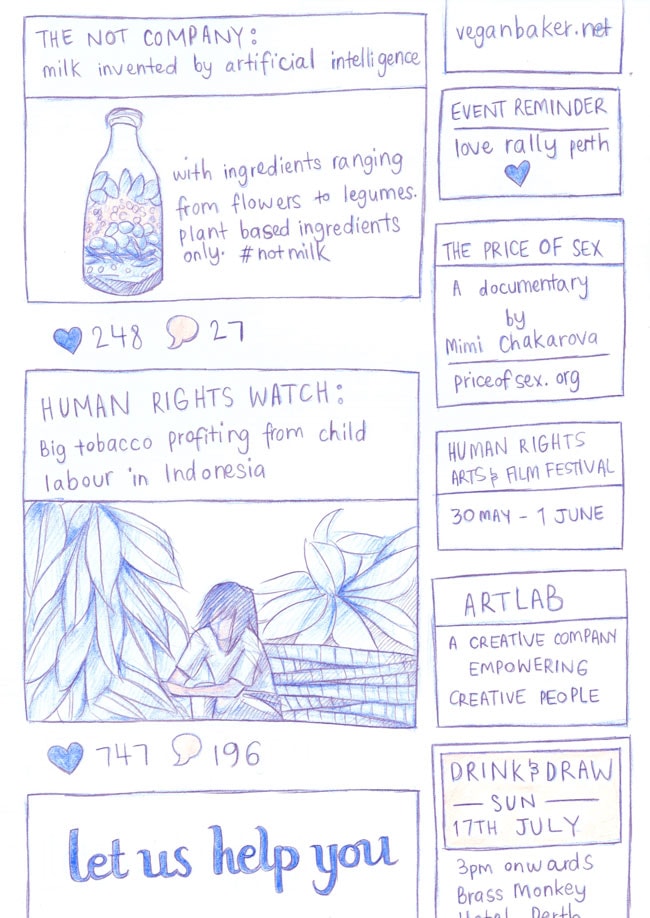 THE NOT COMPANY:
milk invented by artificial intelligence
with ingredients ranging
from flowers to legumes.
plant based ingredients
only. #notmilk
248 27
HUMAN RIGHTS WATCH:
Big tobacco profiting from child
labour in Indonesia
747 196
let us help you
veganbaker.net
EVENT REMINDER
love rally perth
THE PRICE OF SEX
A documentary
by
Mimi Chakarova
priceofsex.org
HUMAN RIGHTS
ARTS & FILM FESTIVAL
30 MAY - 1 JUNE
ARTLAB
A CREATIVE COMPANY
EMPOWERING
CREATIVE PEOPLE
DRINK & DRAW
— SUN —
17TH JULY
3pm onwards
Brass Monkey
Hotel Perth